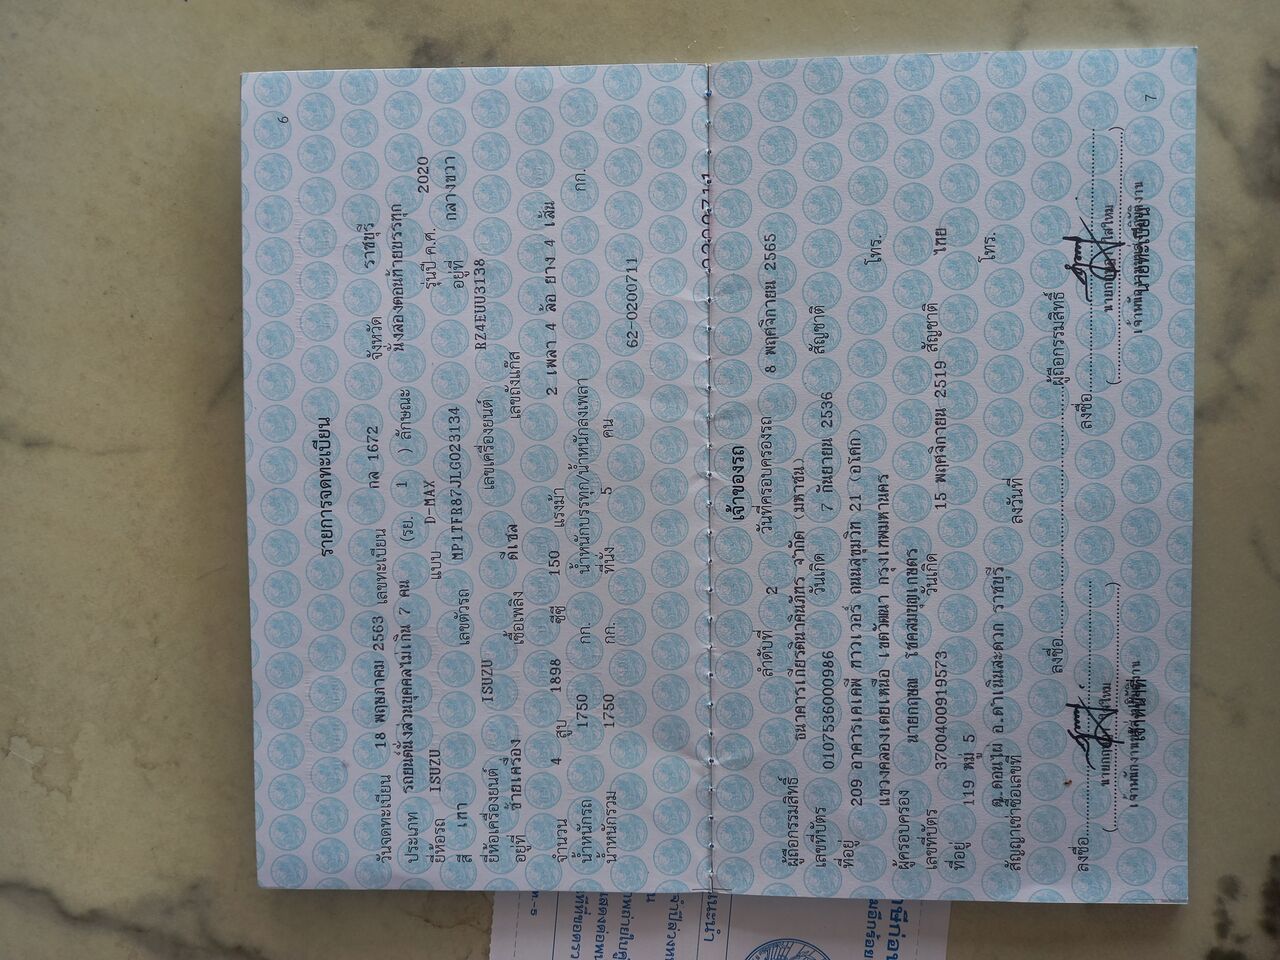 6
รายการจดทะเบียน
วันจดทะเบียน 18 พฤษภาคม 2563 เลขทะเบียน กล 1672 จังหวัด ราชบุรี
ประเภท รถยนต์นั่งส่วนบุคคลไม่เกิน 7 คน (รย. 1 ) ลักษณะ นั่งสองตอนท้ายบรรทุก
ยี่ห้อรถ ISUZU แบบ D-MAX รุ่นปี ค.ศ. 2020
สี เทา เลขตัวรถ MP1TFR87JLG023134 อยู่ที่ กลางขวา
ยี่ห้อเครื่องยนต์ ISUZU เลขเครื่องยนต์ RZ4EUU3138
อยู่ที่ ซ้ายเครื่อง เชื้อเพลิง ดีเซล เลขถังแก๊ส
จำนวน 4 สูบ 1898 ซีซี 150 แรงม้า 2 เพลา 4 ล้อ ยาง 4 เส้น
น้ำหนักรถ 1750 กก. น้ำหนักบรรทุก/น้ำหนักลงเพลา กก.
น้ำหนักรวม 1750 กก. ที่นั่ง 5 คน 62-0200711
เจ้าของรถ
ลำดับที่ 2 วันที่ครอบครองรถ 8 พฤศจิกายน 2565
ผู้ถือกรรมสิทธิ์ ธนาคารเกียรตินาคินภัทร จำกัด (มหาชน)
เลขที่บัตร 0107536000986 วันเกิด 7 กันยายน 2536 สัญชาติ
ที่อยู่ 209 อาคารเคเคพี ทาวเวอร์ ถนนสุขุมวิท 21 (อโศก) โทร.
แขวงคลองเตยเหนือ เขตวัฒนา กรุงเทพมหานคร
ผู้ครอบครอง นายกฤษณ โชคสมบุญเกษตร
เลขที่บัตร 3700400919573 วันเกิด 15 พฤศจิกายน 2519 สัญชาติ ไทย
ที่อยู่ 119 หมู่ 5 โทร.
ต.ดอนไผ่ อ.ดำเนินสะดวก ราชบุรี
สัญญาเช่าซื้อเลขที่ ลงวันที่
ลงชื่อ ผู้ถือกรรมสิทธิ์
ลงชื่อ ลงชื่อ
7